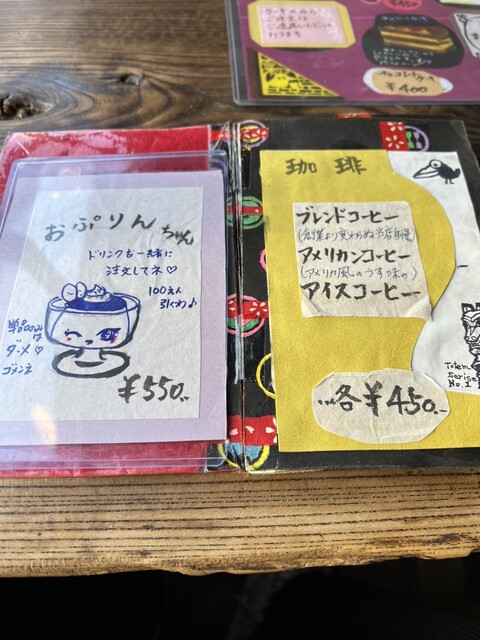 ケーキのみの
ご注文は
チョコレートケーキ
¥400
おぷりんちゃん
ドリンクも一緒に
注文してネ♡
100えん
引くわ♪
単品のみは
ダメ♡
ゴメンネ
¥550.-
珈琲
ブレンドコーヒー
(創業より変わらぬ当店自慢)
アメリカンコーヒー
(アメリカ風のうす味の)
アイスコーヒー
各¥450.-
Totem
Serise
No.1